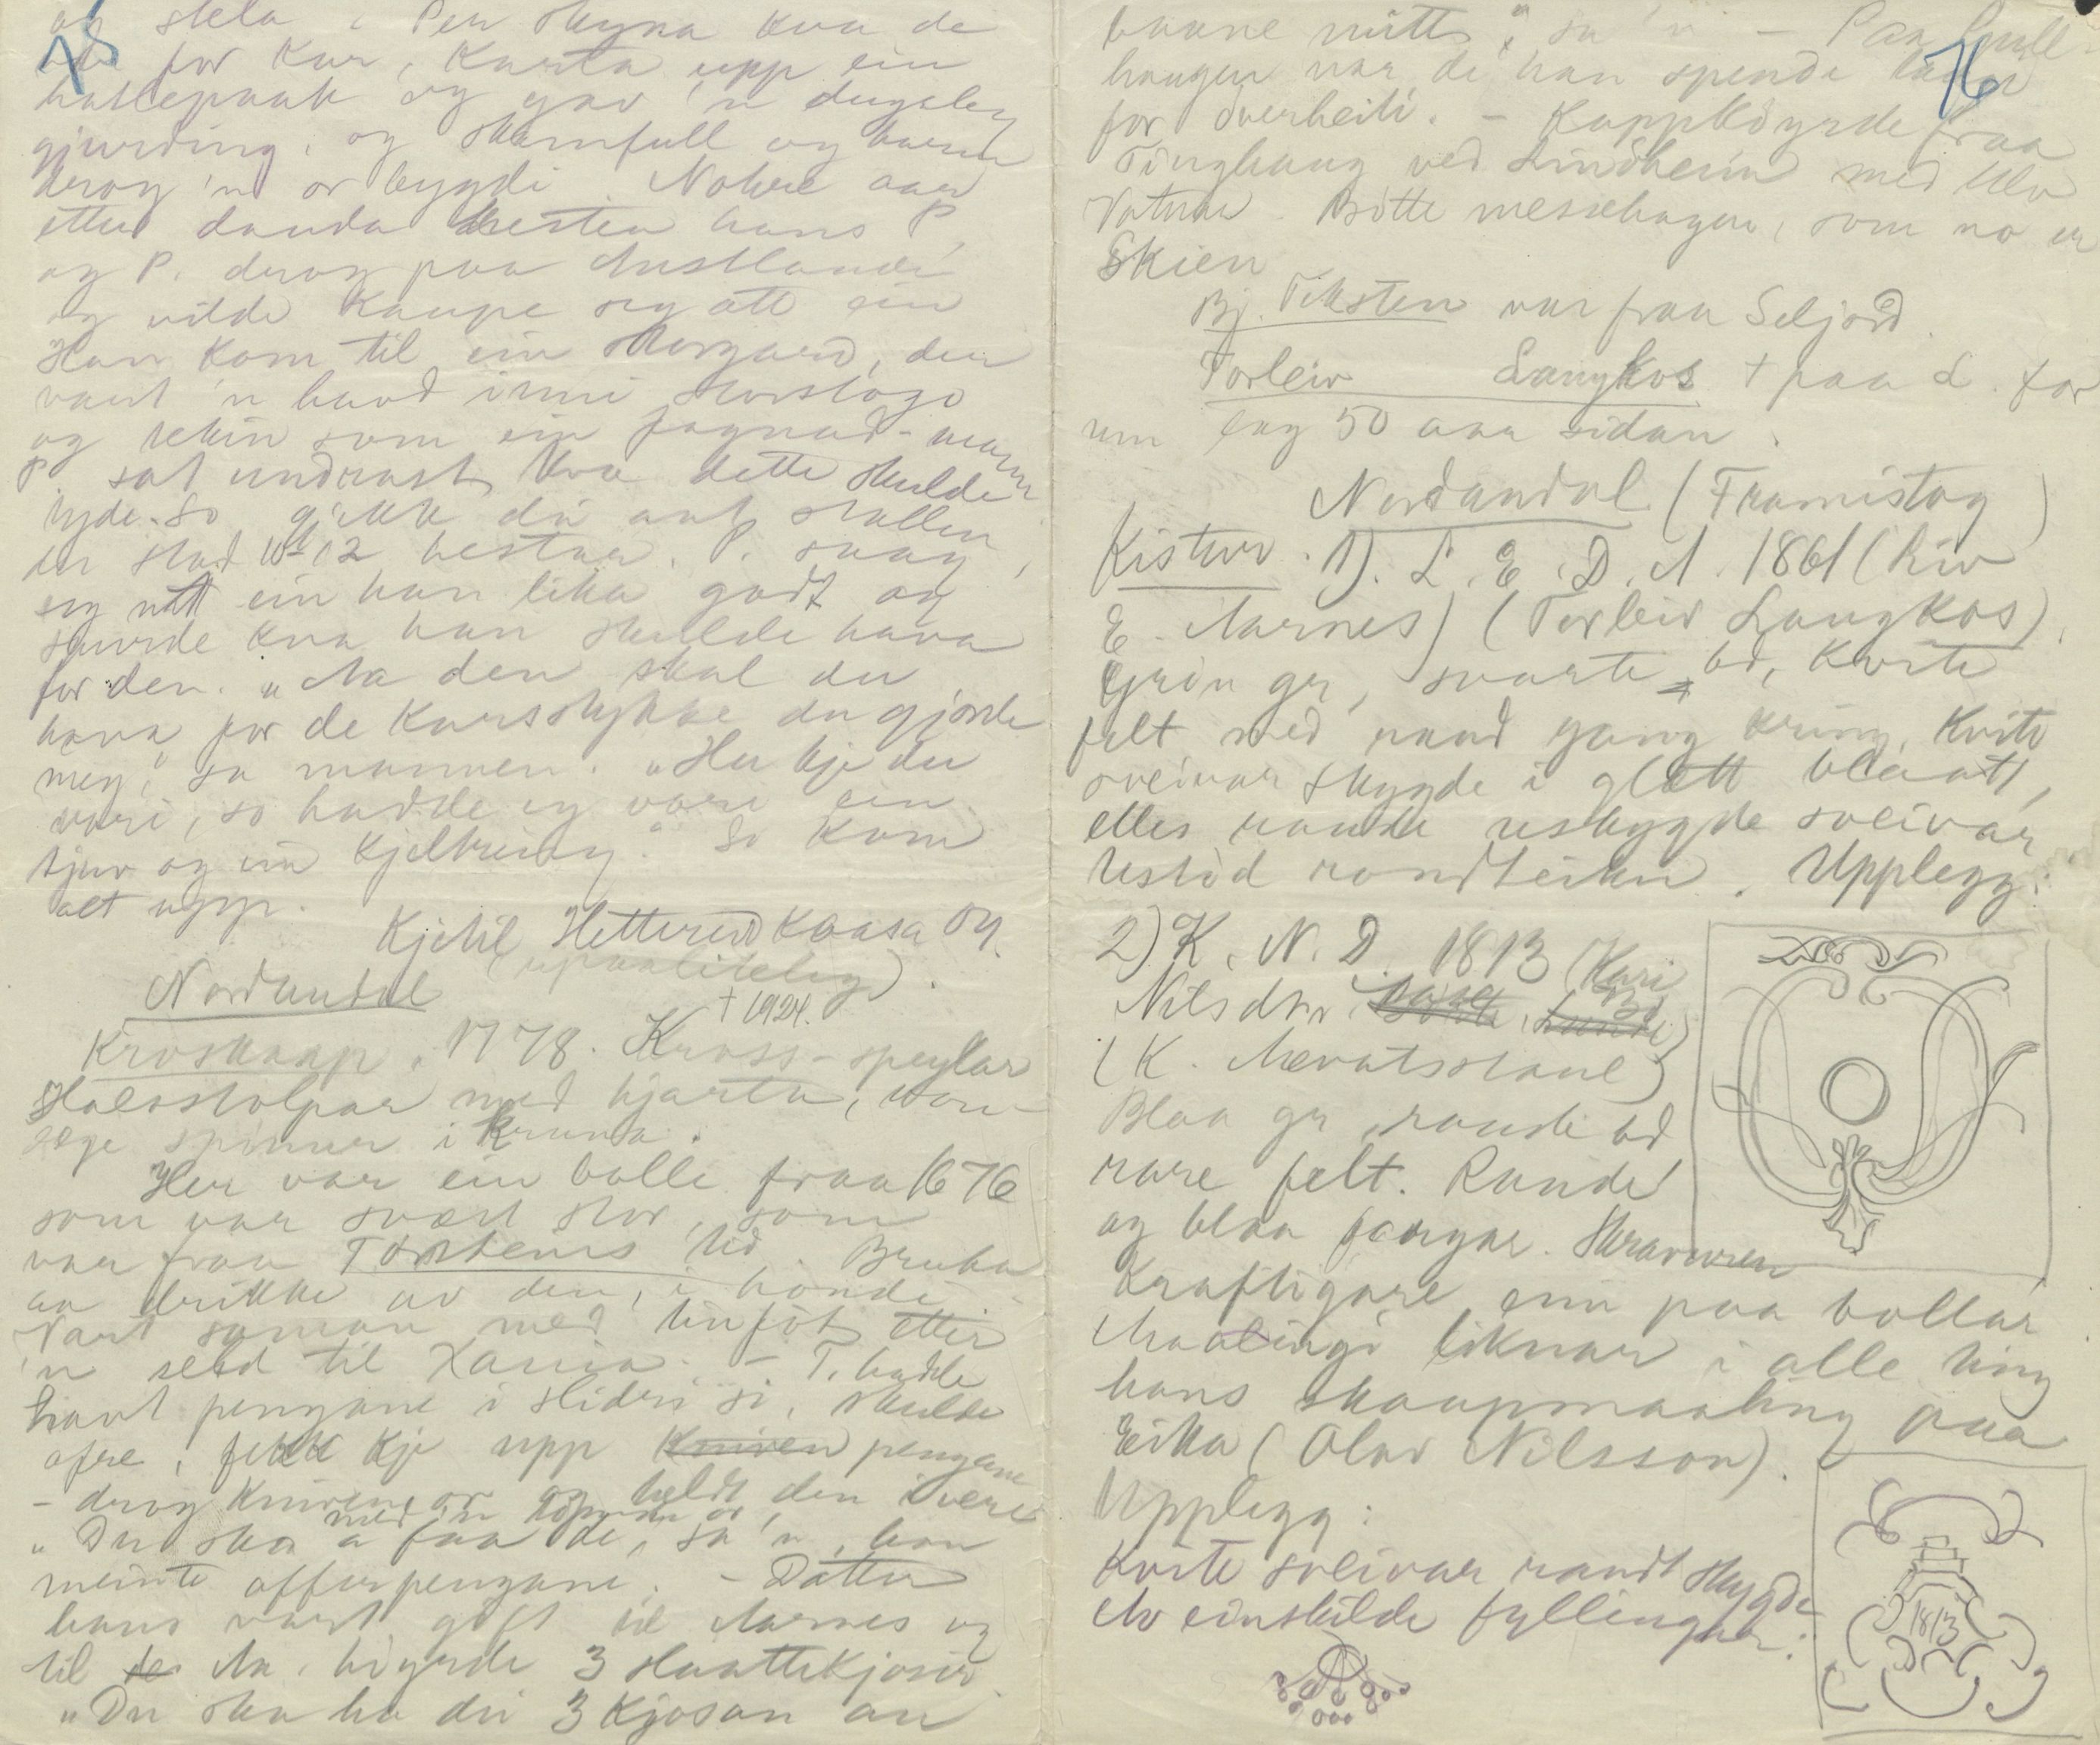 75
og stela i Per Skyna kva de
var for kar, Karta upp ein
hakkepaak og gav 'n dugeleg
gjurding, og skamfull og
drog 'n or bygdi. Nokre aar
etter dauda hesten hans P,
og P. drog paa Austlandi
og vilde kaupe seg att ein
Han kom til ein storgard, der
vart 'n havd inni storstogo
og tekin som ein fagnad-mann
P. sat undrast kva dette skulde
tyde. So gjekk dei aat stallen
der stod 10-12 hestar. P. saag
seg ut ein han lika godt og
spurde kva han skulde hava
for den. "Aa den skal du
hava for de karsstykke du gjorde
meg," sa mannen. "Ha kje du
vori, so hadde eg vore ein
tjuv og ein kjeltring." So kom
alt upp.
Kjetil Hettereid Kaasa og.
(upaaliteleg).
Nordandal
† 1924.
Kroskaap, 1778. Kross-speglar
Halvstolpar med hjarta,
spinner i Kruna.
Her var ein bolle fraa 1676
som var svært stor, som
var fraa Torsteins tid. Bruka
aa drikke av den, i hondi
Vart saman med tinfôt etter
'n seld til Xania. – T. hadde
havt pengane i slidri si, skulde
ofre, fekk kje upp kniven pengane
– drog kniven or og heldt den i være
"Du ska faa de, sa 'n, han
meinte offerpengane. – Dotter
hans vart gift til Aarnes og
til de Aa. høyrde 3 Slaattekjosir
"Du ska ha dei 3 Kjosan an
76
baane mitt," sa 'n – Paa
haugen var de han spende
for overheiti. – Kappkøyrde fraa
Tinghaug ved Lindheim med Ulv
Vatnar. Bøtte messehagen, som no er
Skien
Bj. Tiksten var fraa Seljord.
Torleiv Langkos † paa L. for
um lag 50 aar sidan.
Nordandal (Framistog)
Kistur. 1). L. E. D. A. 1861 (Liv
E. Aarnes) (Torleiv Langkos).
Grøn gr, svarte bd, Kvite
felt med raud gang kring. Kvite
sveivar skygde i glett blaatt,
elles raude uskygde sveivar
Ustød rondteikn. Upplegg:
2) K. N. D. 1813 (Kari
Nilsdtr
(K. Mevatsstaul)
Blaa gr, raude bd
rare felt. Raude
og blaa fargar. Skraveren
Kraftigare enn paa bollar
Maalingi liknar i alle ting
hans skaapmaaling paa
Eika (Olav Nilsson).
Upplegg:
Kvite sveivar raudt skygde
Av einskilde fyllingar:
1813